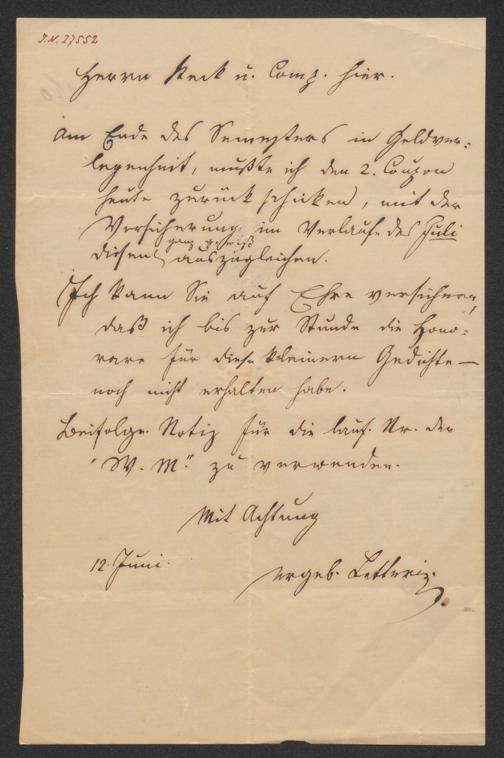 I.N. 27552
Herrn Keck u. Comp. hier.
Am Ende des Semesters in Geldver-
legenheit, mußte ich den 2. Coupon
heute zurück schicken, mit der
Versicherung im Verlaufe des Juli
ganz gewiß
diesen auszugleichen.
Ich kann Sie auf Ehre versichern,
daß ich bis zur Stunde die Hono-
rare für diese kleinern Gedichte —
noch nicht erhalten habe.
Beifolge. Notiz für die lauf. Nr. der
"W. M." zu verwenden.
Mit Achtung
12. Juni.
ergeb. Letteris.